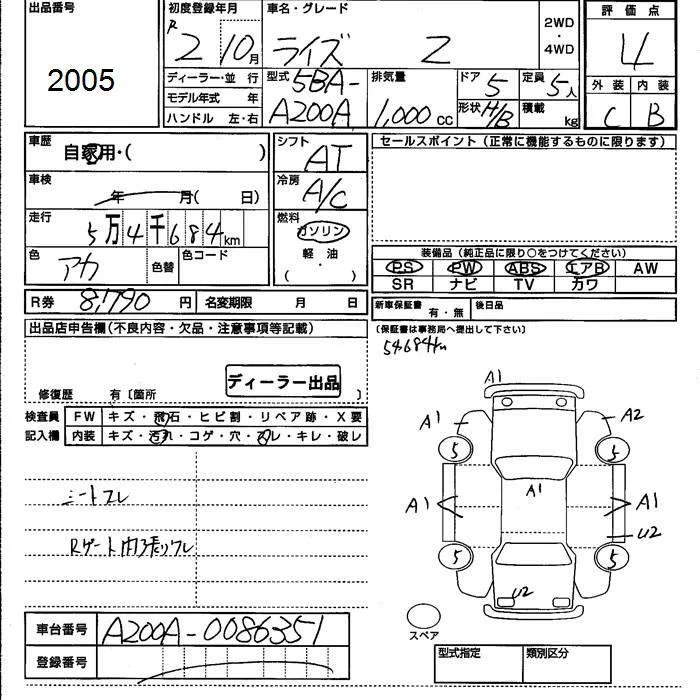 出品番号
2005
初度登録年月
R2 10月
車名・グレード
ライズ Z
2WD
・
4WD
評価点
4
外装 内装
C B
ディーラー・並 行
モデル年式 年
ハンドル 左・右
型式 5BA-
A200A
排気量
1,000 cc
ドア 5
形状 H/B
定員 5人
積載 kg
車歴
自家用・( )
車検
年 月( 日)
走行
5万4千684km
色
アカ
色替
色コード
シフト
AT
冷房
A/C
燃料
ガソリン
軽・油
( )
セールスポイント(正常に機能するものに限ります)
装備品(純正品に限り○をつけてください)
PS PW ABS エアB AW
SR ナビ TV カワ
R券 8,790 円 名変期限 月 日
新車保証書
有・無
後日品
(保証書は事務局へ提出して下さい)
54684km
出品店申告欄(不良内容・欠品・注意事項等記載)
ディーラー出品
修復歴 有〔箇所 〕
検査員 FW キズ・飛石・ヒビ割・リペア跡・X要
記入欄 内装 キズ・汚れ・コゲ・穴・スレ・キレ・破レ
シートスレ
Rゲート内張りワレ
A1
A1 A2
5 5
A1 A1 A1
U2
5 5
U2
スペア
車台番号 A200A-0086351
登録番号
型式指定 類別区分